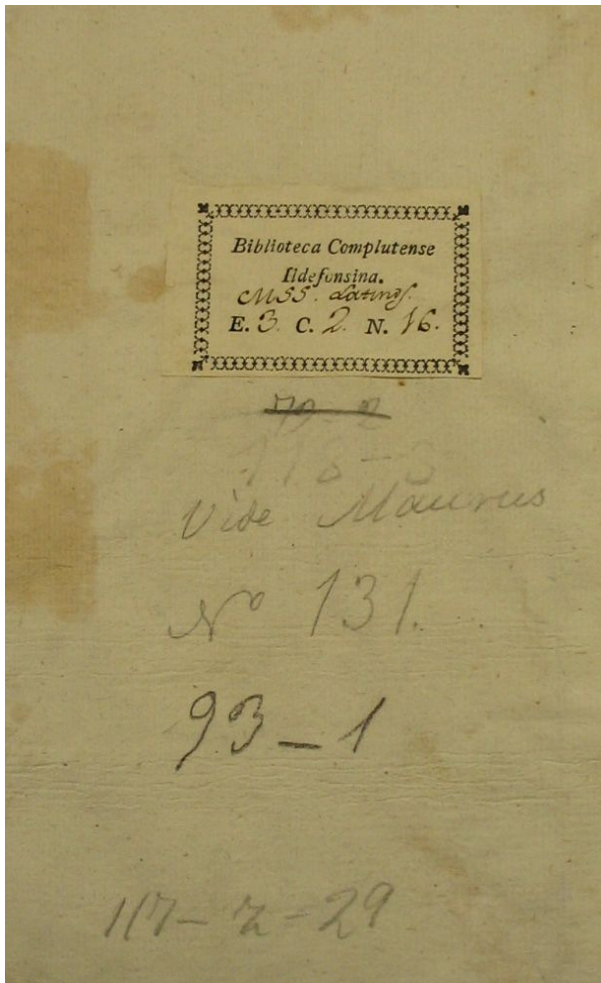 Biblioteca Complutense
Ildefonsina.
MSS. Latinos.
E. 3. C. 2. N. 16.
118-
Vide Maurus
Nº 131.
93-1
117-Z-29